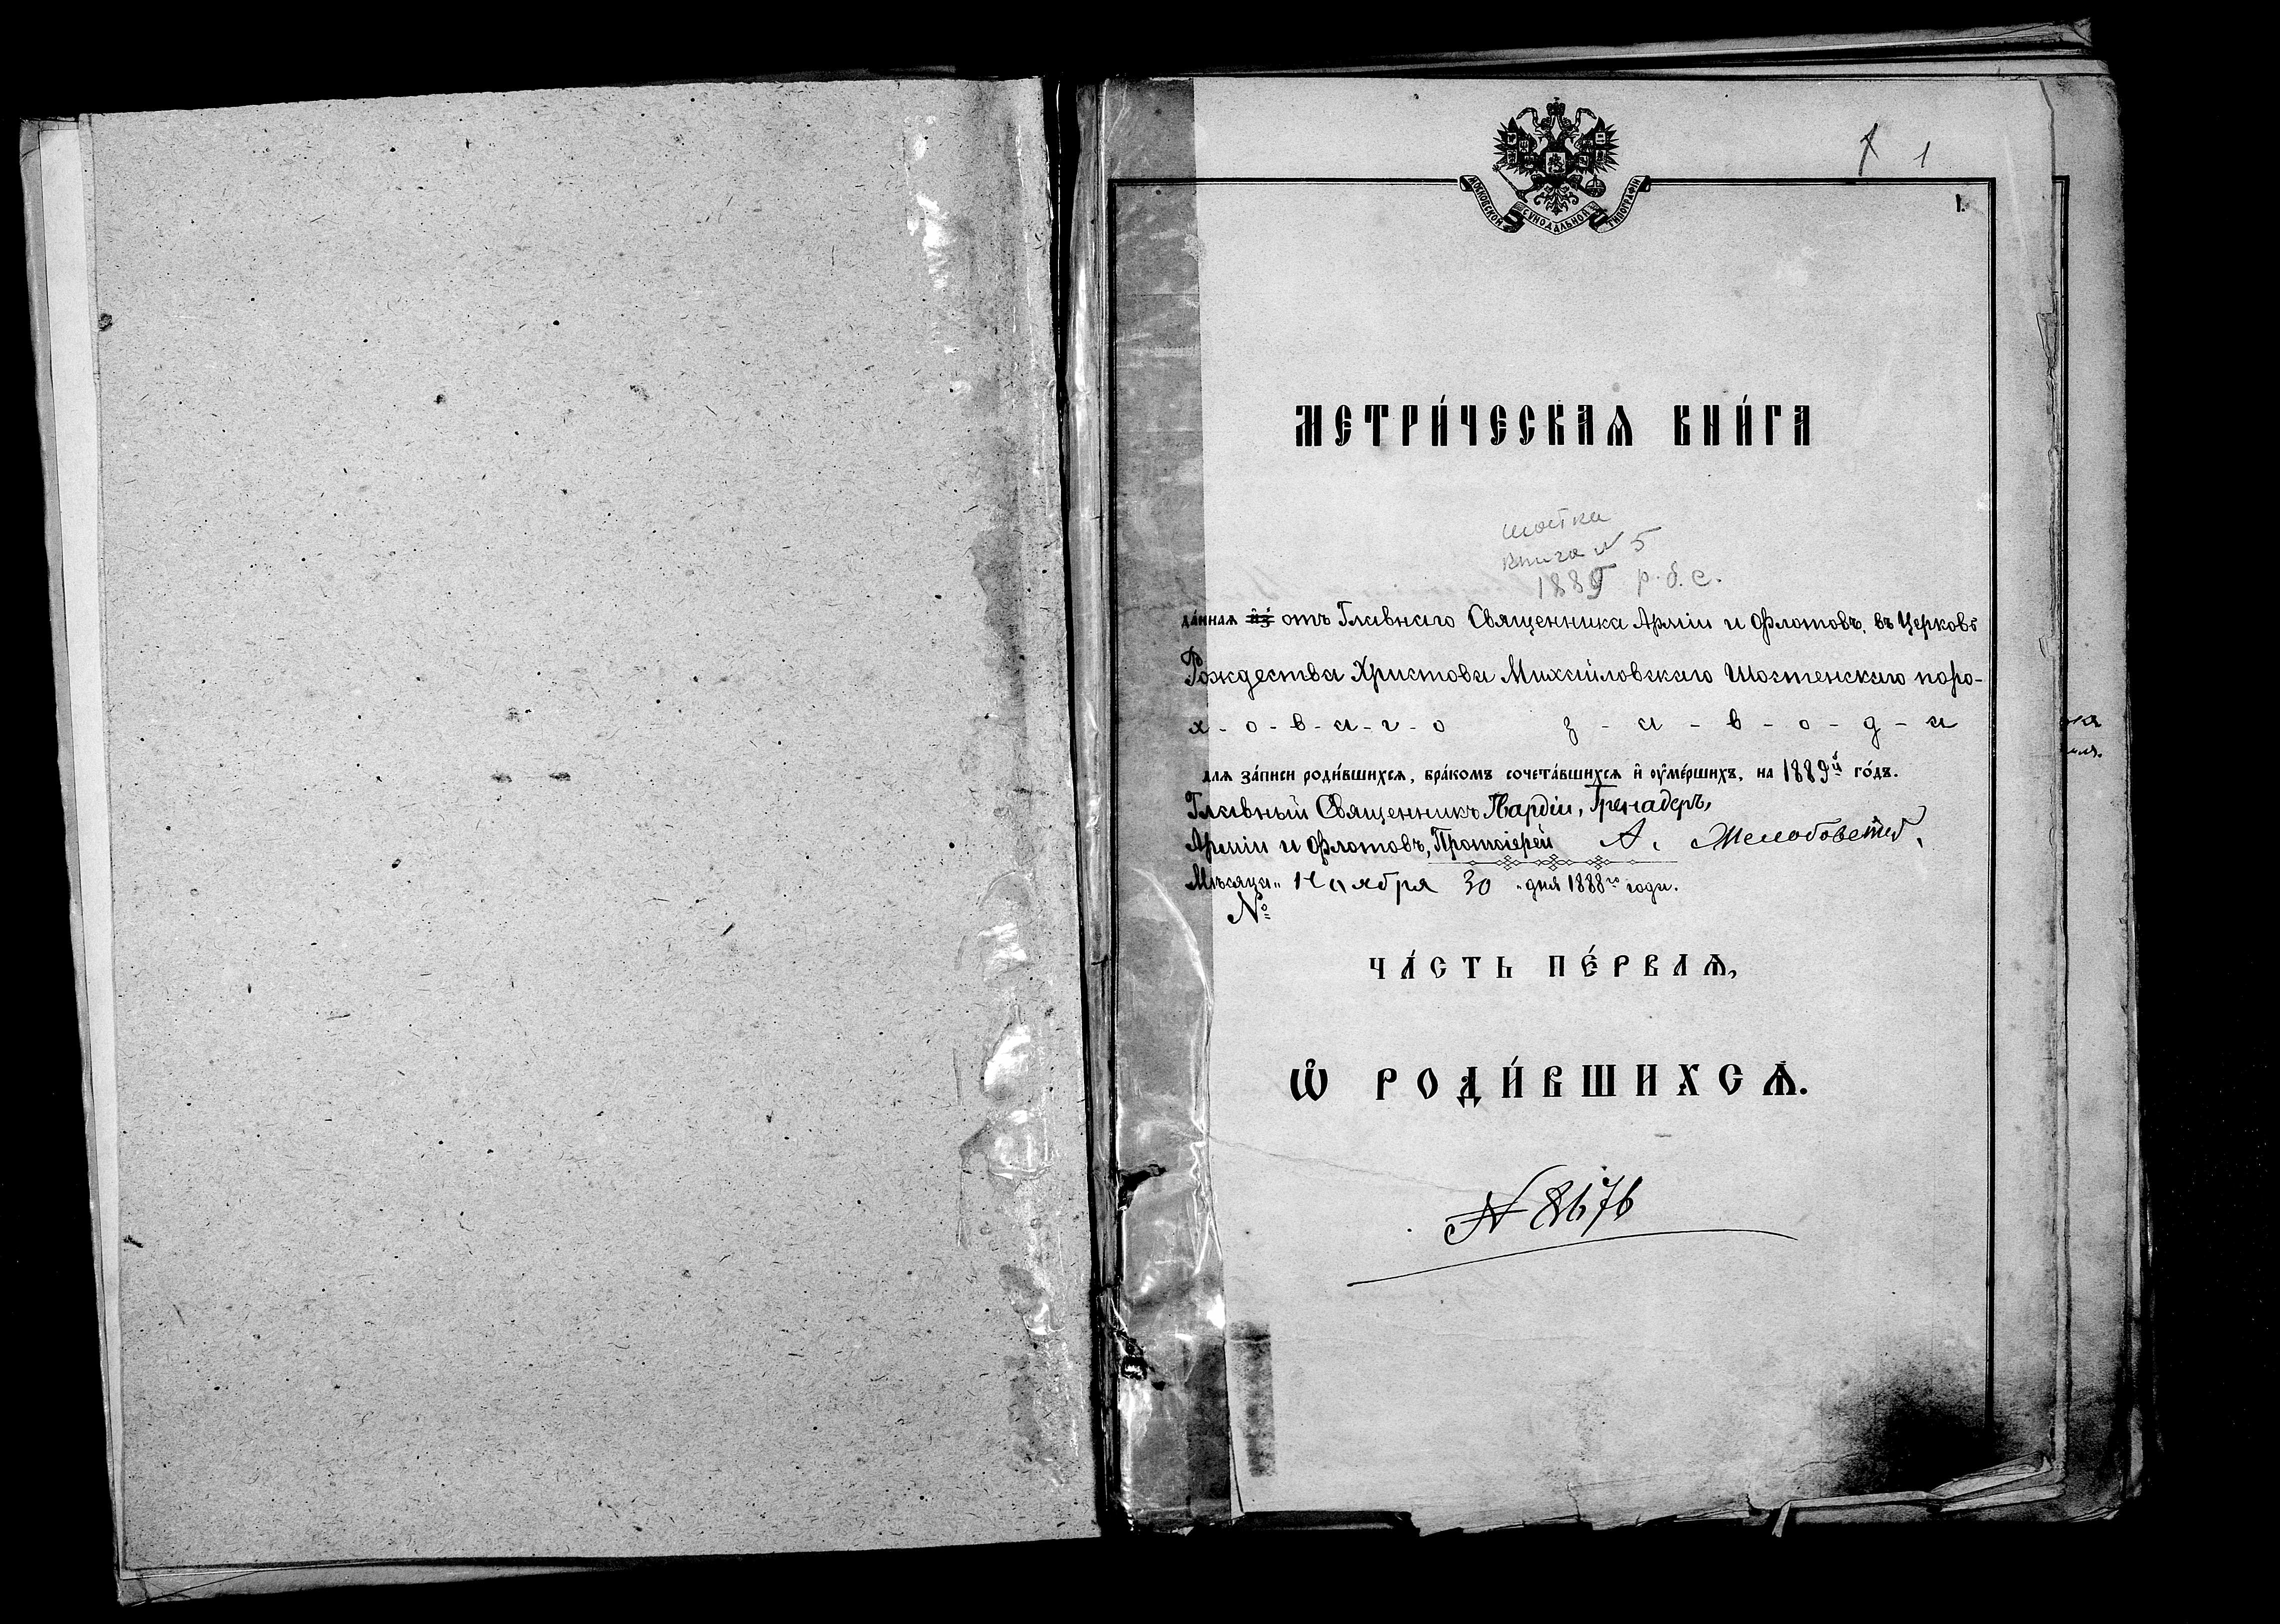 1
1.
МОСКОВСКОЙ СѴНОДАЛЬНОЙ ТИПОГРАФІИ
МЕТРИ́ЧЕСКАѦ КНИ́ГА
шостка
книга № 5
1889 р.б.с.
да́ннаѧ отъ Главнаго Священника Арміи и Флотовъ, въ Церковь
Рождества Христова Михайловскаго Шостенскаго поро-
х-о-в-а-г-о з-а-в-о-д-а
для за́писи роди́вшихсѧ, бра́комъ сочета́вшихсѧ и҆ ᲂу҆ме́ршихъ, на 1889й го́дъ.
Главный Священникъ Гвардіи, Гренадеръ,
Арміи и Флотовъ, Протоіерей А. Желобовскій,
Мѣсяца „ Ноября 30 „ дня 1888го года.
№
ЧА́СТЬ ПЕ́РВАѦ,
Ѡ҆ РОДИ́ВШИХСѦ.
№ 8676